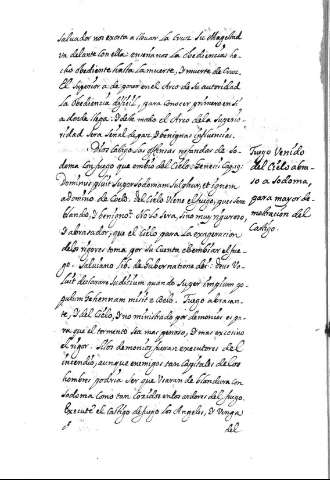 salvador nos exorta a llevar la Cruz su Magestad
va delante con ella: enseñanos la obediencia he-
cho obediente hasta la muerte, y muerte de Cruz.
El superior a de poner en el Arco de su autoridad
la obediencia dificil, para conocer primero en si a
donde llega: y de este modo el Arco de la Superio-
ridad sera señal de paz, y benignas influencias.
Dios castigo las ofensas nefandas de So-
doma con fuego que embio del Cielo: Genesis
Dominus pluit super Sodomam sulphur, et ignem
a domino de Cælo. Del Cielo viene el fuego, que sera
blando, y benigno? No lo sera, sino muy riguroso,
y abrasador, que el Cielo para la
de rigores toma por su cuenta el embiar el fue-
go. Salviano lib. de Gubernatione dei: Deus Vo-
luit declarare Judicium quando super impium po-
pulum Gehennam misit e Cælo. Fuego abrasan-
te, y del Cielo, y no ministrado por demonios es pa-
ra que el tormento sea mas penoso, y mas excesivo
el rigor. Si los demonios fueran executores del
incendio, aunque enemigos tan capitales de los
hombres podria ser que usaran de blandura con
Sodoma como tan cozidos en los ardores del fuego.
Execute el castigo de fuego los Angeles, y venga
del
Fuego Venido
del Cielo abra-
so a Sodoma,
para mayor de-
mostracion del
Castigo.